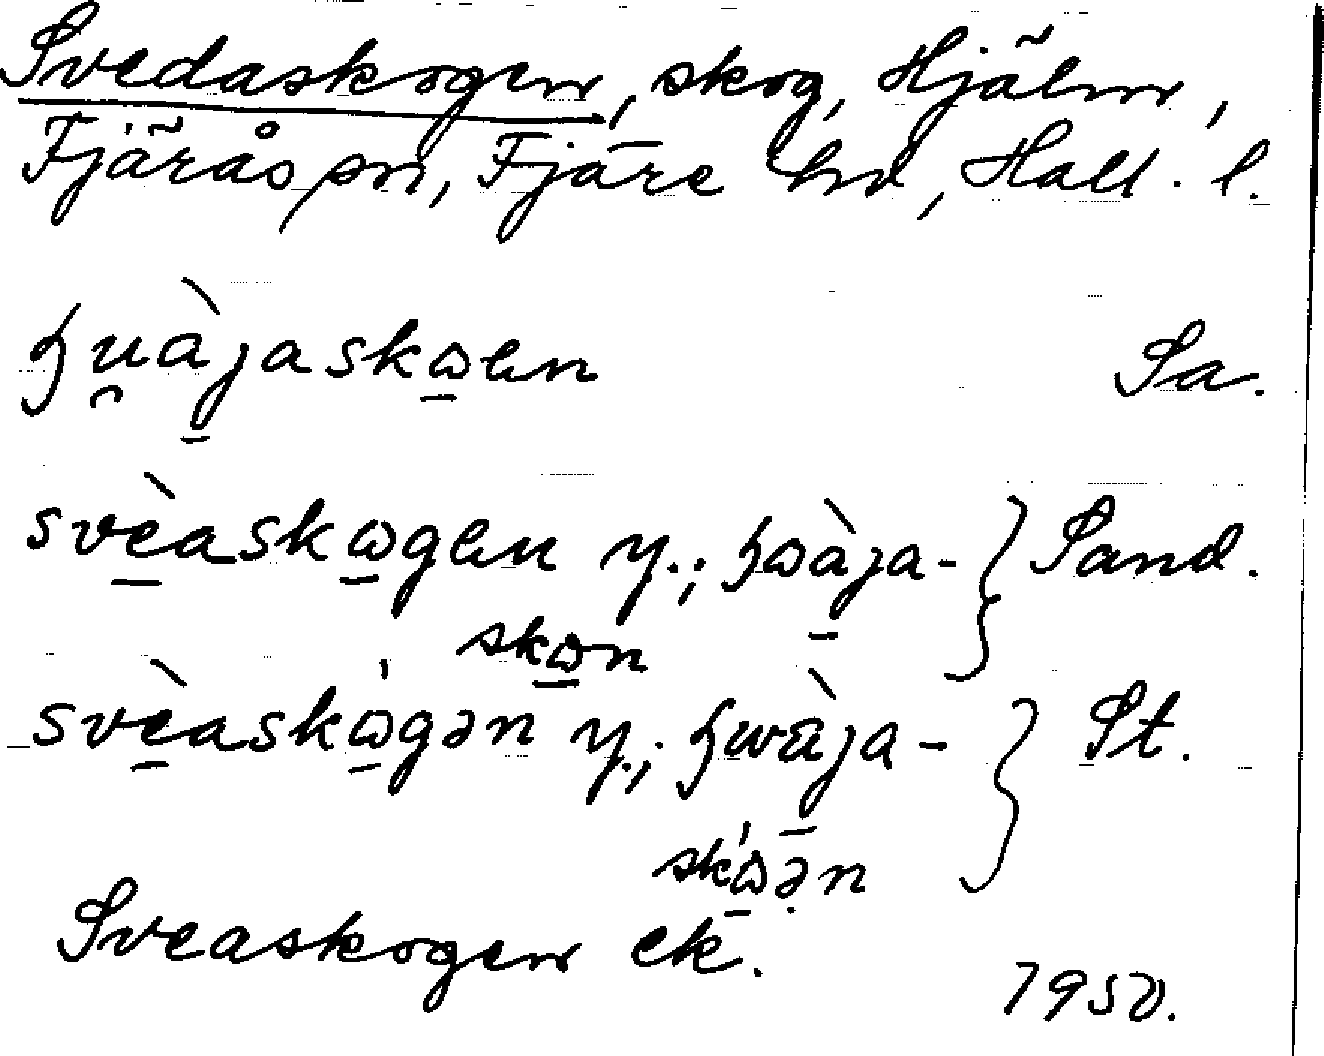 Svedaskogen, skog, Hjälm,
Fjärås sn, Fjäre hd, Hall. l.
ɧu̯àjaskɷen Sa.
svèaskɷgen y.; ɧɷàja- } Sand.
skɷn
svèaskɷ̀gən y.; ɧwàja- } St.
skɷ̀ən
Sveaskogen ek.
1950.